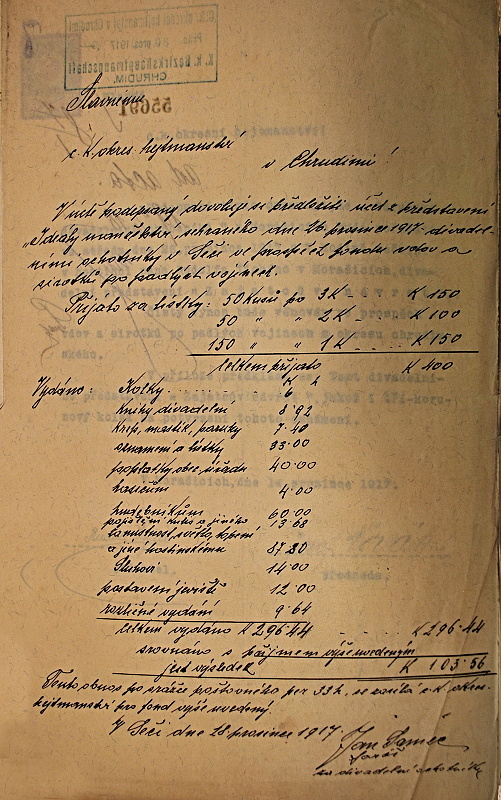 K. k. Bezirkshauptmannschaft
CHRUDIM.
55691
Slavnému
c. k. okres. hejtmanství
v Chrudimi!
V úctě podepsaný dovoluji si předložiti účet z představení
"Ideály maněstků" sehraného dne 26. prosince 1917 divadel-
ními ochotníky v Seči ve prospěch fondu vdov a
sirotků po padlých vojínech.
Přijato za lístky: 50 kusů po 3K K 150
50 " " 2K K 100
150 " " 1K K 150
celkem přijato K 400
K h
Vydáno: Kolky 6
knihy divadelní 8·92
krep, mastix, paruky 7·40
oznamení a lístky 33·00
poplatky, obec. úřadu 40·00
hasičům 4·00
hudebníkům 60·00
13·68
místnost, světlo, topení
a jiné hostinskému 87·80
Sluhovi 14·00
postavení jeviště 12·00
rozličné vydání 9·64
celkem vydáno K 296·44 K 296·44
srovnáno s příjmem výše uvedeným
jest výsledek K 103·56
Tento obnos po srážce poštovného per 33h, se zasílá c. k. okres.
hejtmanství pro fond výše uvedený.
V Seči dne 28. prosince 1917.
Jan
za divadelní ochotníky